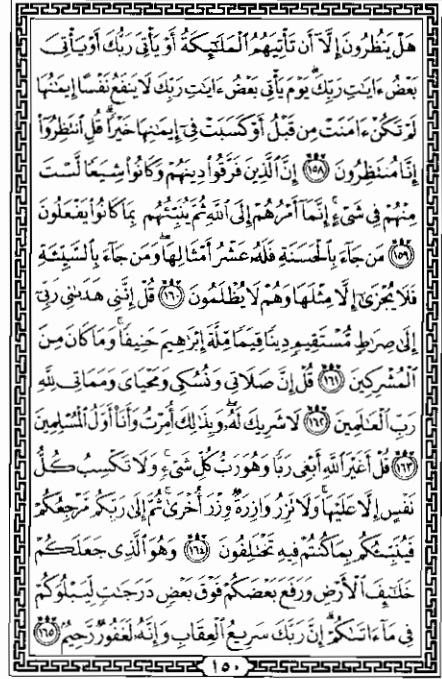 هَلْ يَنظُرُونَ إِلَّآ أَن تَأْتِيَهُمُ ٱلْمَلَٰٓئِكَةُ أَوْ يَأْتِىَ رَبُّكَ أَوْ يَأْتِىَ
بَعْضُ ءَايَٰتِ رَبِّكَ ۗ يَوْمَ يَأْتِى بَعْضُ ءَايَٰتِ رَبِّكَ لَا يَنفَعُ نَفْسًا إِيمَٰنُهَا
لَمْ تَكُنْ ءَامَنَتْ مِن قَبْلُ أَوْ كَسَبَتْ فِىٓ إِيمَٰنِهَا خَيْرًا ۗ قُلِ ٱنتَظِرُوٓا۟
إِنَّا مُنتَظِرُونَ ١٥٨ إِنَّ ٱلَّذِينَ فَرَّقُوا۟ دِينَهُمْ وَكَانُوا۟ شِيَعًا لَّسْتَ
مِنْهُمْ فِى شَىْءٍ ۚ إِنَّمَآ أَمْرُهُمْ إِلَى ٱللَّهِ ثُمَّ يُنَبِّئُهُم بِمَا كَانُوا۟ يَفْعَلُونَ
١٥٩ مَن جَآءَ بِٱلْحَسَنَةِ فَلَهُۥ عَشْرُ أَمْثَالِهَا ۖ وَمَن جَآءَ بِٱلسَّيِّئَةِ
فَلَا يُجْزَىٰٓ إِلَّا مِثْلَهَا وَهُمْ لَا يُظْلَمُونَ ١٦٠ قُلْ إِنَّنِى هَدَىٰنِى رَبِّىٓ
إِلَىٰ صِرَٰطٍ مُّسْتَقِيمٍ دِينًا قِيَمًا مِّلَّةَ إِبْرَٰهِيمَ حَنِيفًا ۚ وَمَا كَانَ مِنَ
ٱلْمُشْرِكِينَ ١٦١ قُلْ إِنَّ صَلَاتِى وَنُسُكِى وَمَحْيَاىَ وَمَمَاتِى لِلَّهِ
رَبِّ ٱلْعَٰلَمِينَ ١٦٢ لَا شَرِيكَ لَهُۥ ۖ وَبِذَٰلِكَ أُمِرْتُ وَأَنَا۠ أَوَّلُ ٱلْمُسْلِمِينَ
١٦٣ قُلْ أَغَيْرَ ٱللَّهِ أَبْغِى رَبًّا وَهُوَ رَبُّ كُلِّ شَىْءٍ ۚ وَلَا تَكْسِبُ كُلُّ
نَفْسٍ إِلَّا عَلَيْهَا ۚ وَلَا تَزِرُ وَازِرَةٌ وِزْرَ أُخْرَىٰ ۚ ثُمَّ إِلَىٰ رَبِّكُم مَّرْجِعُكُمْ
فَيُنَبِّئُكُم بِمَا كُنتُمْ فِيهِ تَخْتَلِفُونَ ١٦٤ وَهُوَ ٱلَّذِى جَعَلَكُمْ
خَلَٰٓئِفَ ٱلْأَرْضِ وَرَفَعَ بَعْضَكُمْ فَوْقَ بَعْضٍ دَرَجَٰتٍ لِّيَبْلُوَكُمْ
فِى مَآ ءَاتَىٰكُمْ ۗ إِنَّ رَبَّكَ سَرِيعُ ٱلْعِقَابِ وَإِنَّهُۥ لَغَفُورٌ رَّحِيمٌۢ ١٦٥
١٥٠